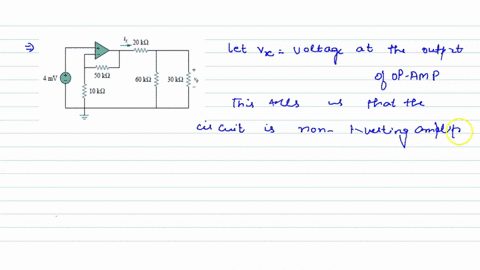 ⇒
i_x
20 kΩ
+
−
50 kΩ
4 mV
60 kΩ
30 kΩ
+
v_o
−
10 kΩ
let Vx = voltage at the output
of OP-AMP
This tells us that the
circuit is non-